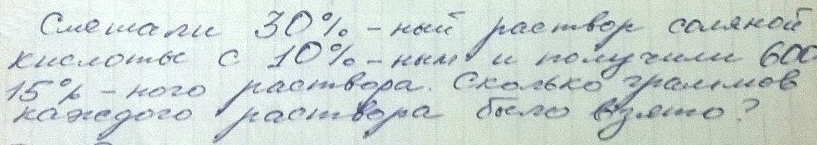 Смешали 30% - ный раствор соляной
кислоты с 10% - ным и получили 600
15% - ного раствора. Сколько граммов
каждого раствора было взято?